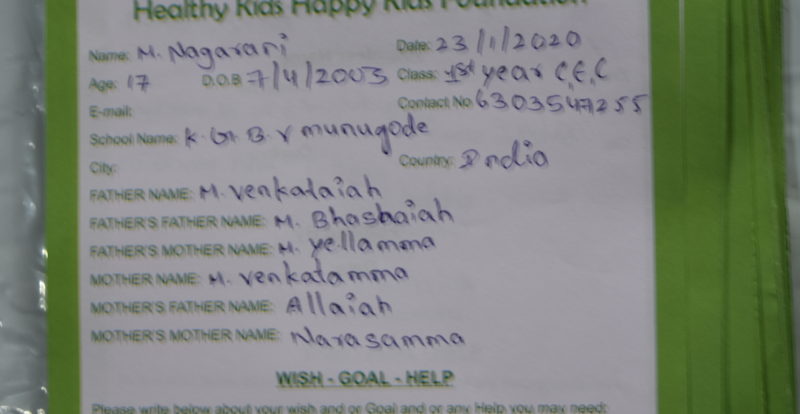 Healthy Kids Happy Kids Foundation
Name: M. Nagarani Date: 23/1/2020
Age: 17 D.O.B 7/4/2003 Class: 1st year C.E.C
E-mail: Contact No 6303547255
School Name: K. G. B. V munugode
City: Country: India
FATHER NAME: M. venkataiah
FATHER'S FATHER NAME: M. Bhashaiah
FATHER'S MOTHER NAME: M. yellamma
MOTHER NAME: M. venkatamma
MOTHER'S FATHER NAME: Allaiah
MOTHER'S MOTHER NAME: Narasamma
WISH - GOAL - HELP
Please write below about your wish and or Goal and or any Help you may need: